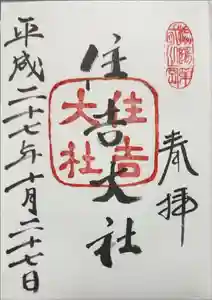 奉拝
住吉大社
住吉
大社
平成二十七年十月二十七日